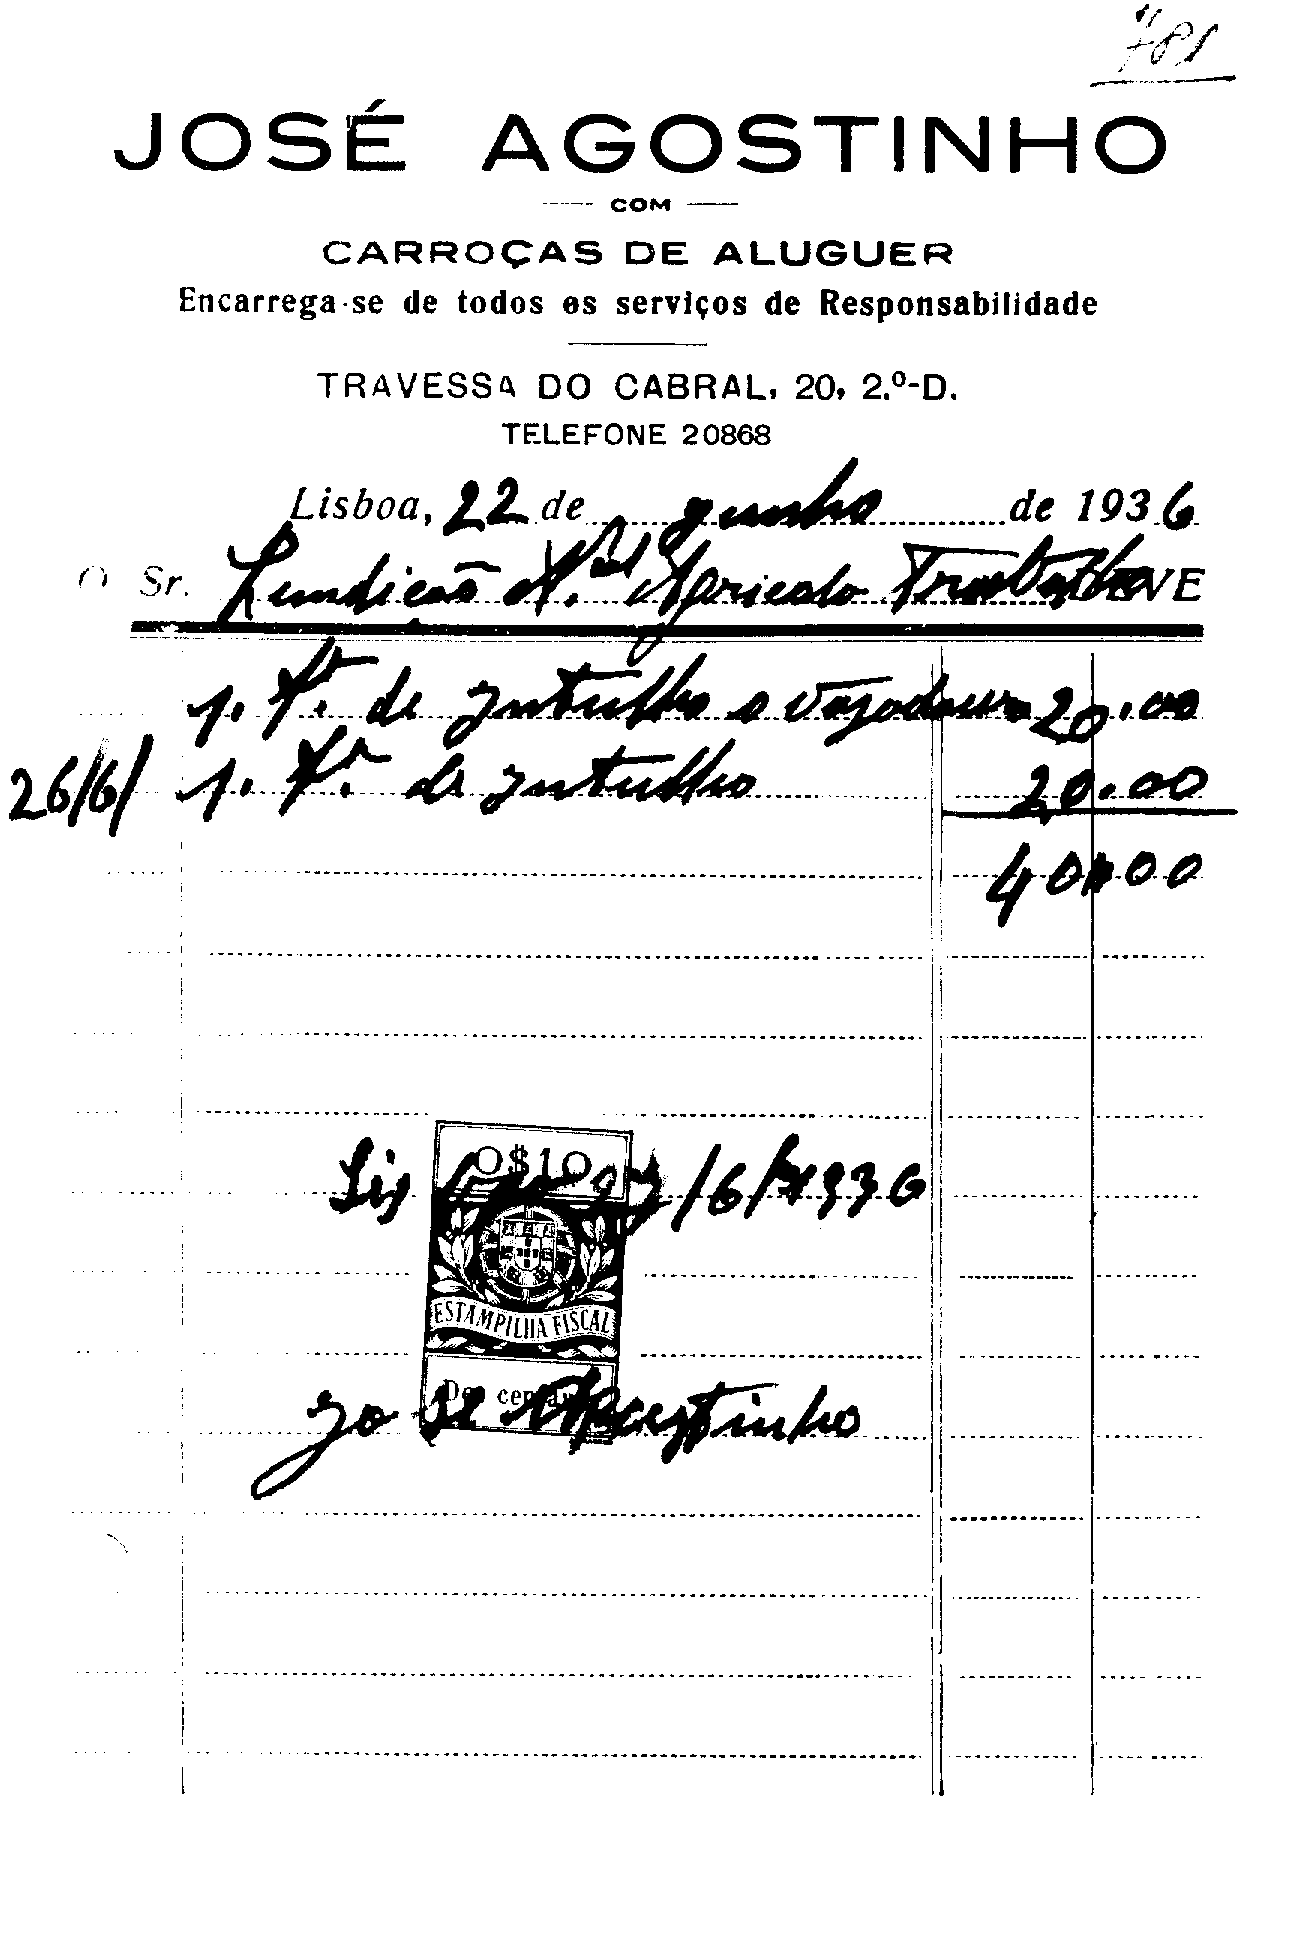 781
JOSÉ AGOSTINHO
COM
CARROÇAS DE ALUGUER
Encarrega-se de todos os serviços de Responsabilidade
TRAVESSA DO CABRAL, 20, 2.º-D.
TELEFONE 20868
Lisboa, 22 de junho de 1936
O Sr. Fundição N.al Agricola Trabalho DEVE
1. Fr. de Intulho e vazadouro 20.00
26/6/ 1. Fr. de Intulho 20.00
40.00
0$10
Lisboa 27/6/1936
ESTAMPILHA FISCAL
Dez centavos
José Agostinho